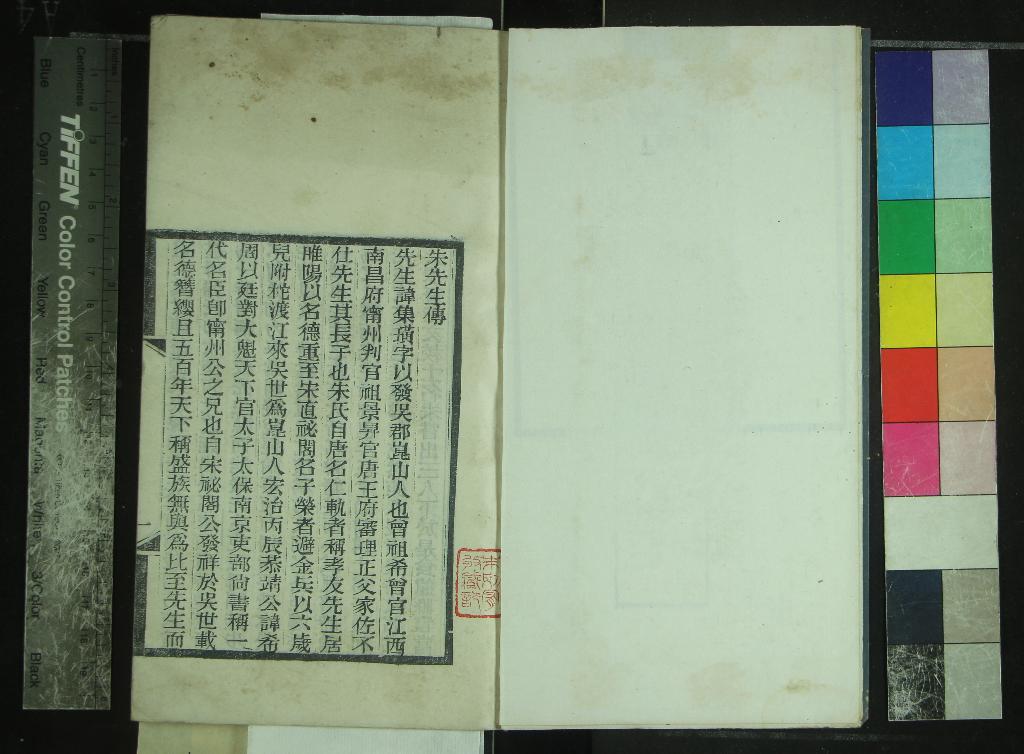 朱先生傳
先生諱集璜字以發吳郡崑山人也曾祖希曾官江西
南昌府甯州判官祖景昇官唐王府審理正父家佐不
仕先生其長子也朱氏自唐名仁軌者稱孝友先生居
睢陽以名德重至宋直祕閣名子榮者避金兵以六歲
兒附柁渡江來吳世爲崑山人宏治丙辰恭靖公諱希
周以廷對大魁天下官太子太保南京吏部尙書稱一
代名臣卽甯州公之兄也自宋祕閣公發祥於吳世載
名德簪纓且五百年天下稱盛族無與爲比至先生而
Inches
Centimetres
TIFFEN Color Control Patches
Blue
Cyan
Green
Yellow
Red
Magenta
White
3/Color
Black